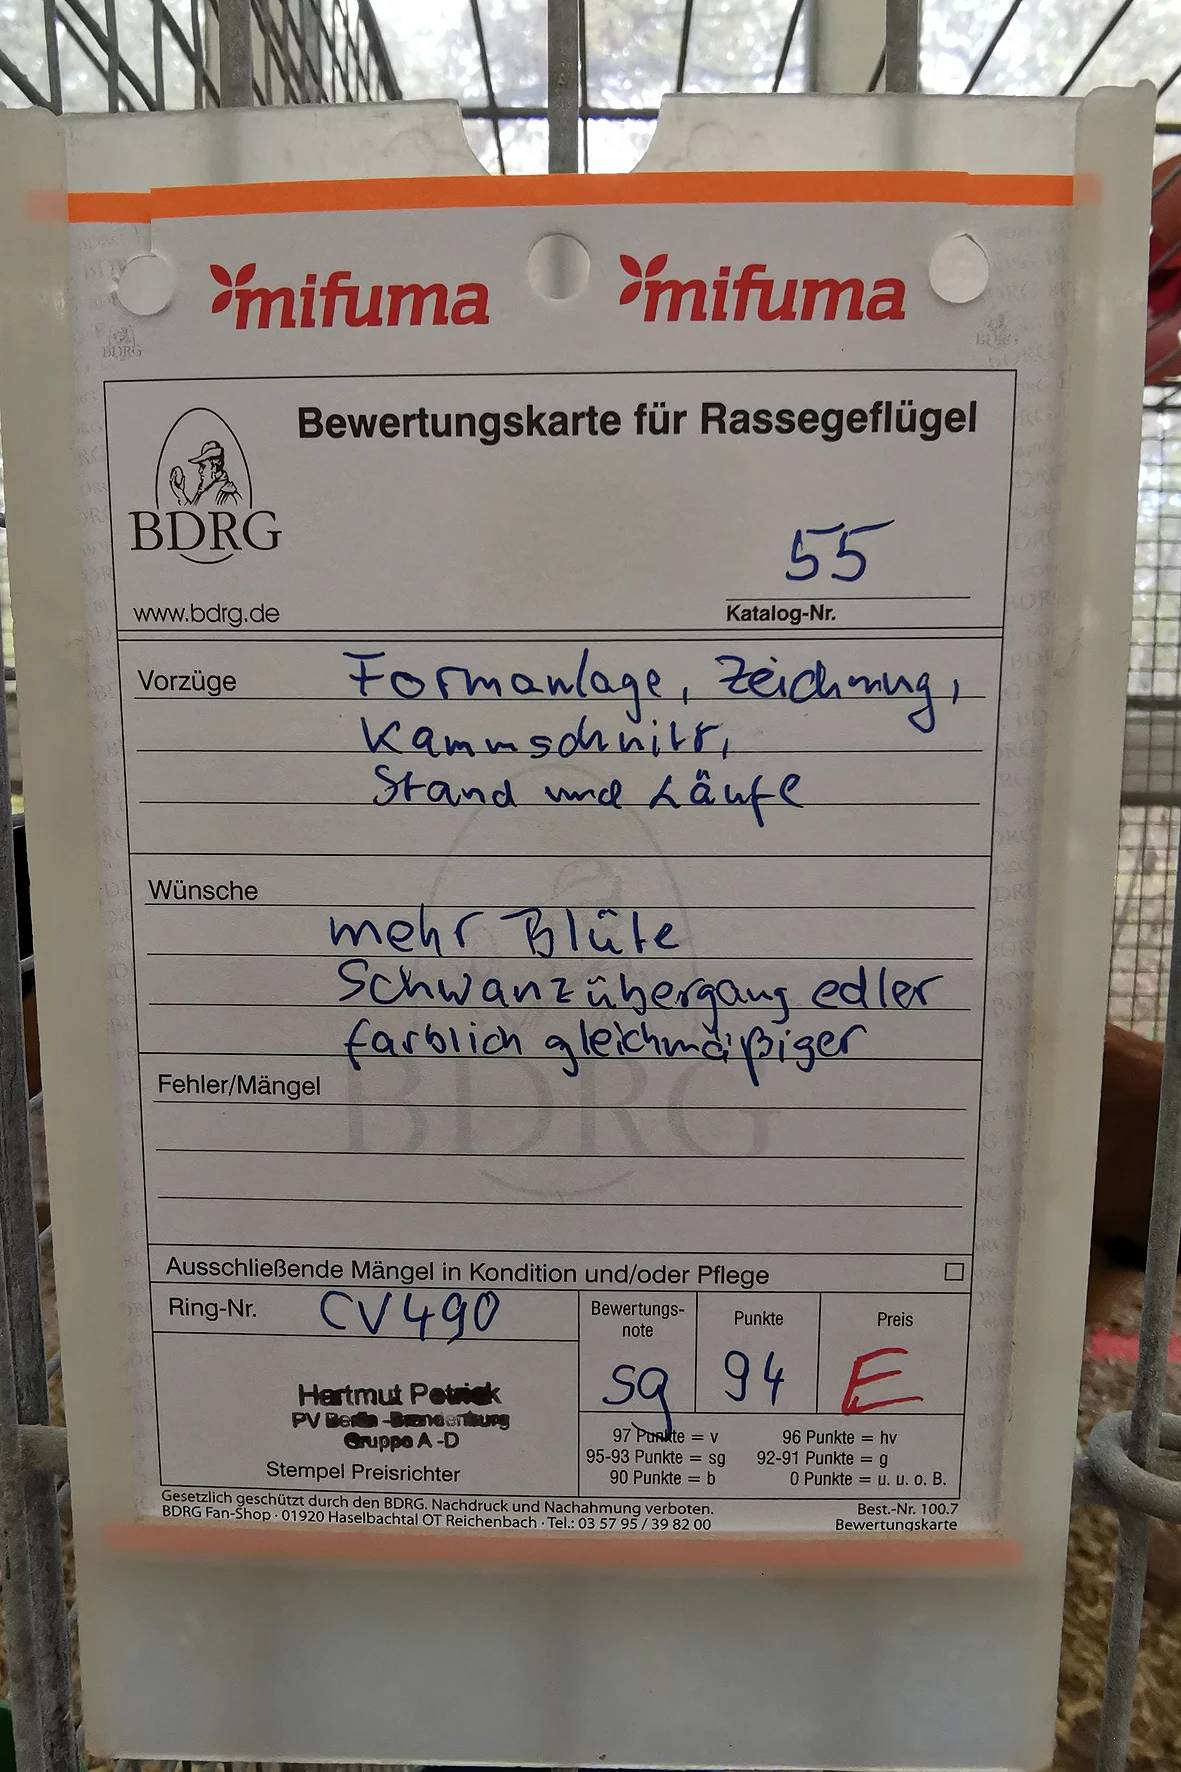 mifuma mifuma
BDRG BDRG
Bewertungskarte für Rassegeflügel
BDRG
55
www.bdrg.de
Katalog-Nr.
Vorzüge Formanlage, Zeichnung,
Kammschnitt,
Stand und Läufe
Wünsche
mehr Blüte
Schwanzübergang edler
farblich gleichmäßiger
Fehler/Mängel
BDRG
Ausschließende Mängel in Kondition und/oder Pflege
Ring-Nr. CV490
Bewertungs-
note
Punkte
Preis
sg 94 E
Hartmut Petrick
PV Berlin-Brandenburg
Gruppe A-D
Stempel Preisrichter
97 Punkte = v 96 Punkte = hv
95-93 Punkte = sg 92-91 Punkte = g
90 Punkte = b 0 Punkte = u. u. o. B.
Gesetzlich geschützt durch den BDRG. Nachdruck und Nachahmung verboten.
BDRG Fan-Shop · 01920 Haselbachtal OT Reichenbach · Tel.: 03 57 95 / 39 82 00
Best.-Nr. 100.7
Bewertungskarte